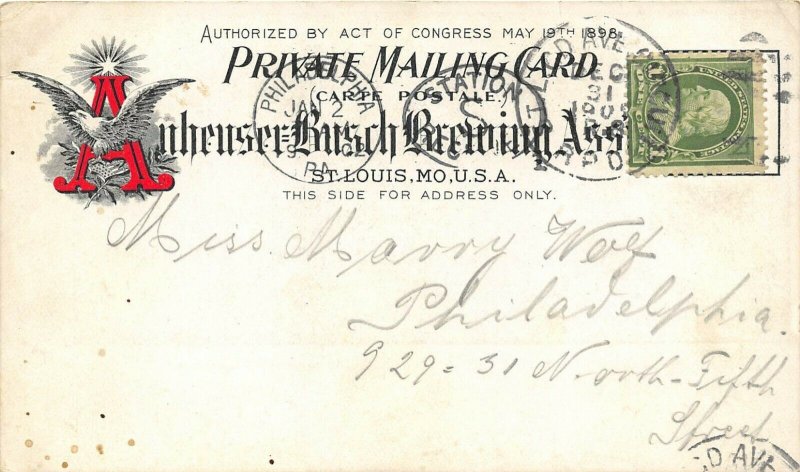 AUTHORIZED BY ACT OF CONGRESS MAY 19TH 1898.
PRIVATE MAILING CARD
(CARTE POSTALE.)
Anheuser-Busch Brewing Ass
ST. LOUIS, MO., U.S.A.
THIS SIDE FOR ADDRESS ONLY.
PHILADELPHIA
JAN 2
PA.
STATION
S
D AVE
31
R.P.O.
Miss Marry Wolf
Philadelphia.
929=31 North-Fifth
Street
D AVE